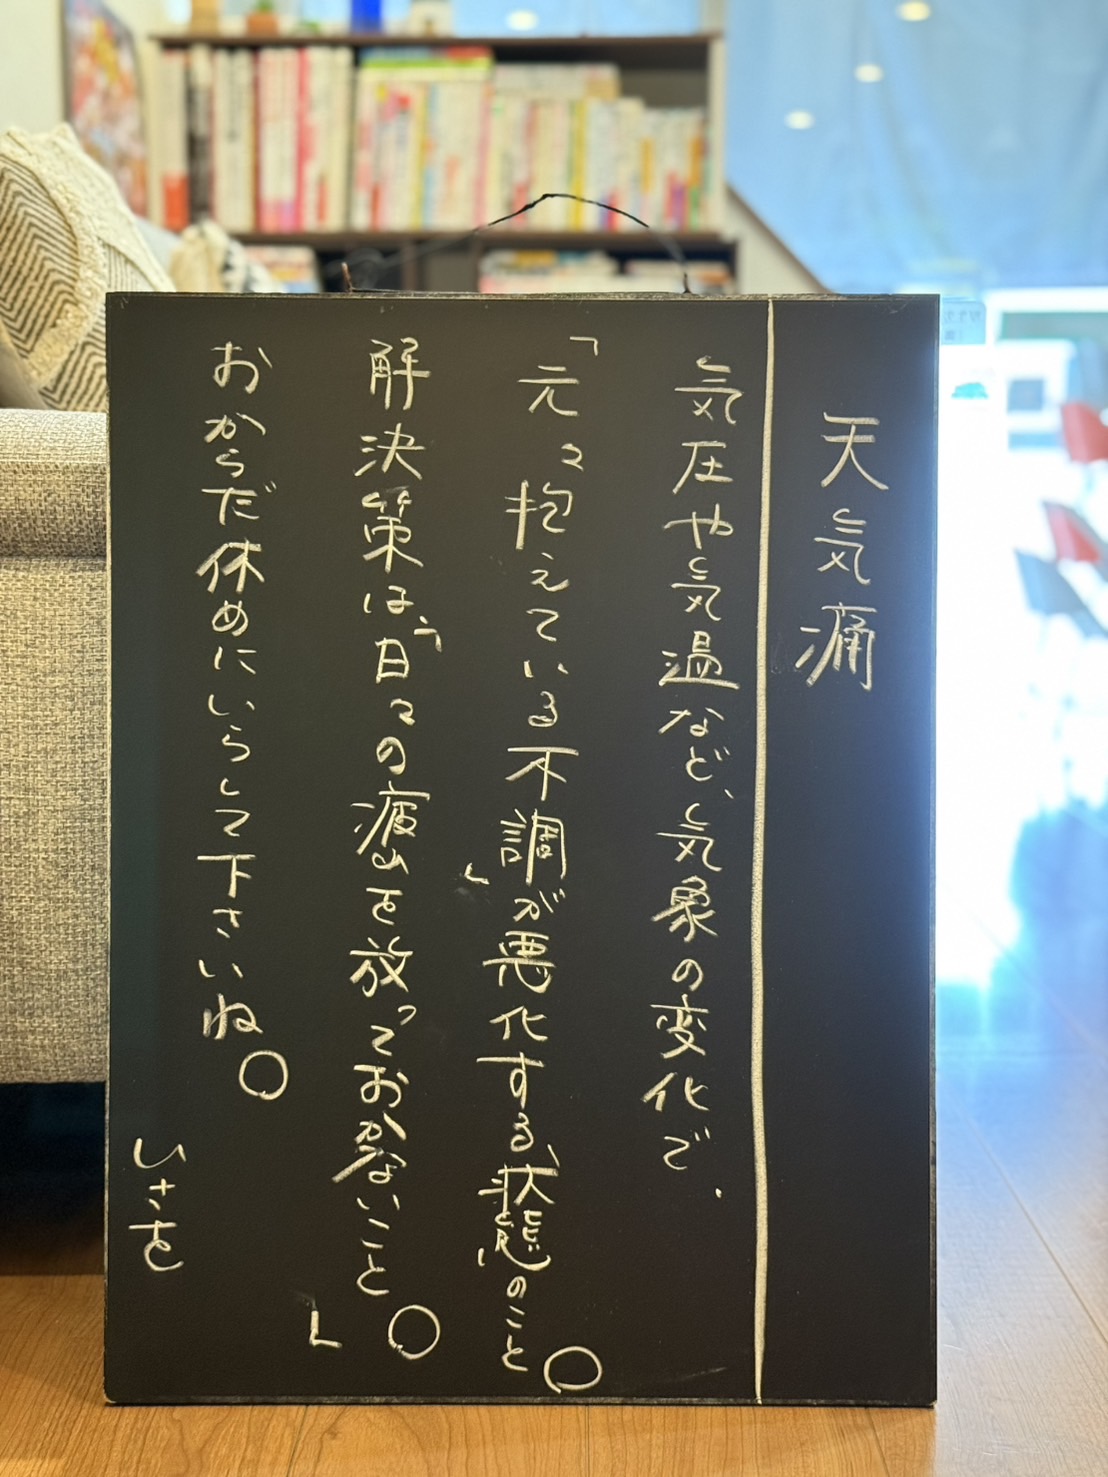 天気痛
気圧や気温など、気象の変化で、
「元々抱えている不調」が悪化する、状態のこと。
解決策は、「日々の疲れを放っておかないこと。」
おからだ休めにいらして下さいね。
いさを